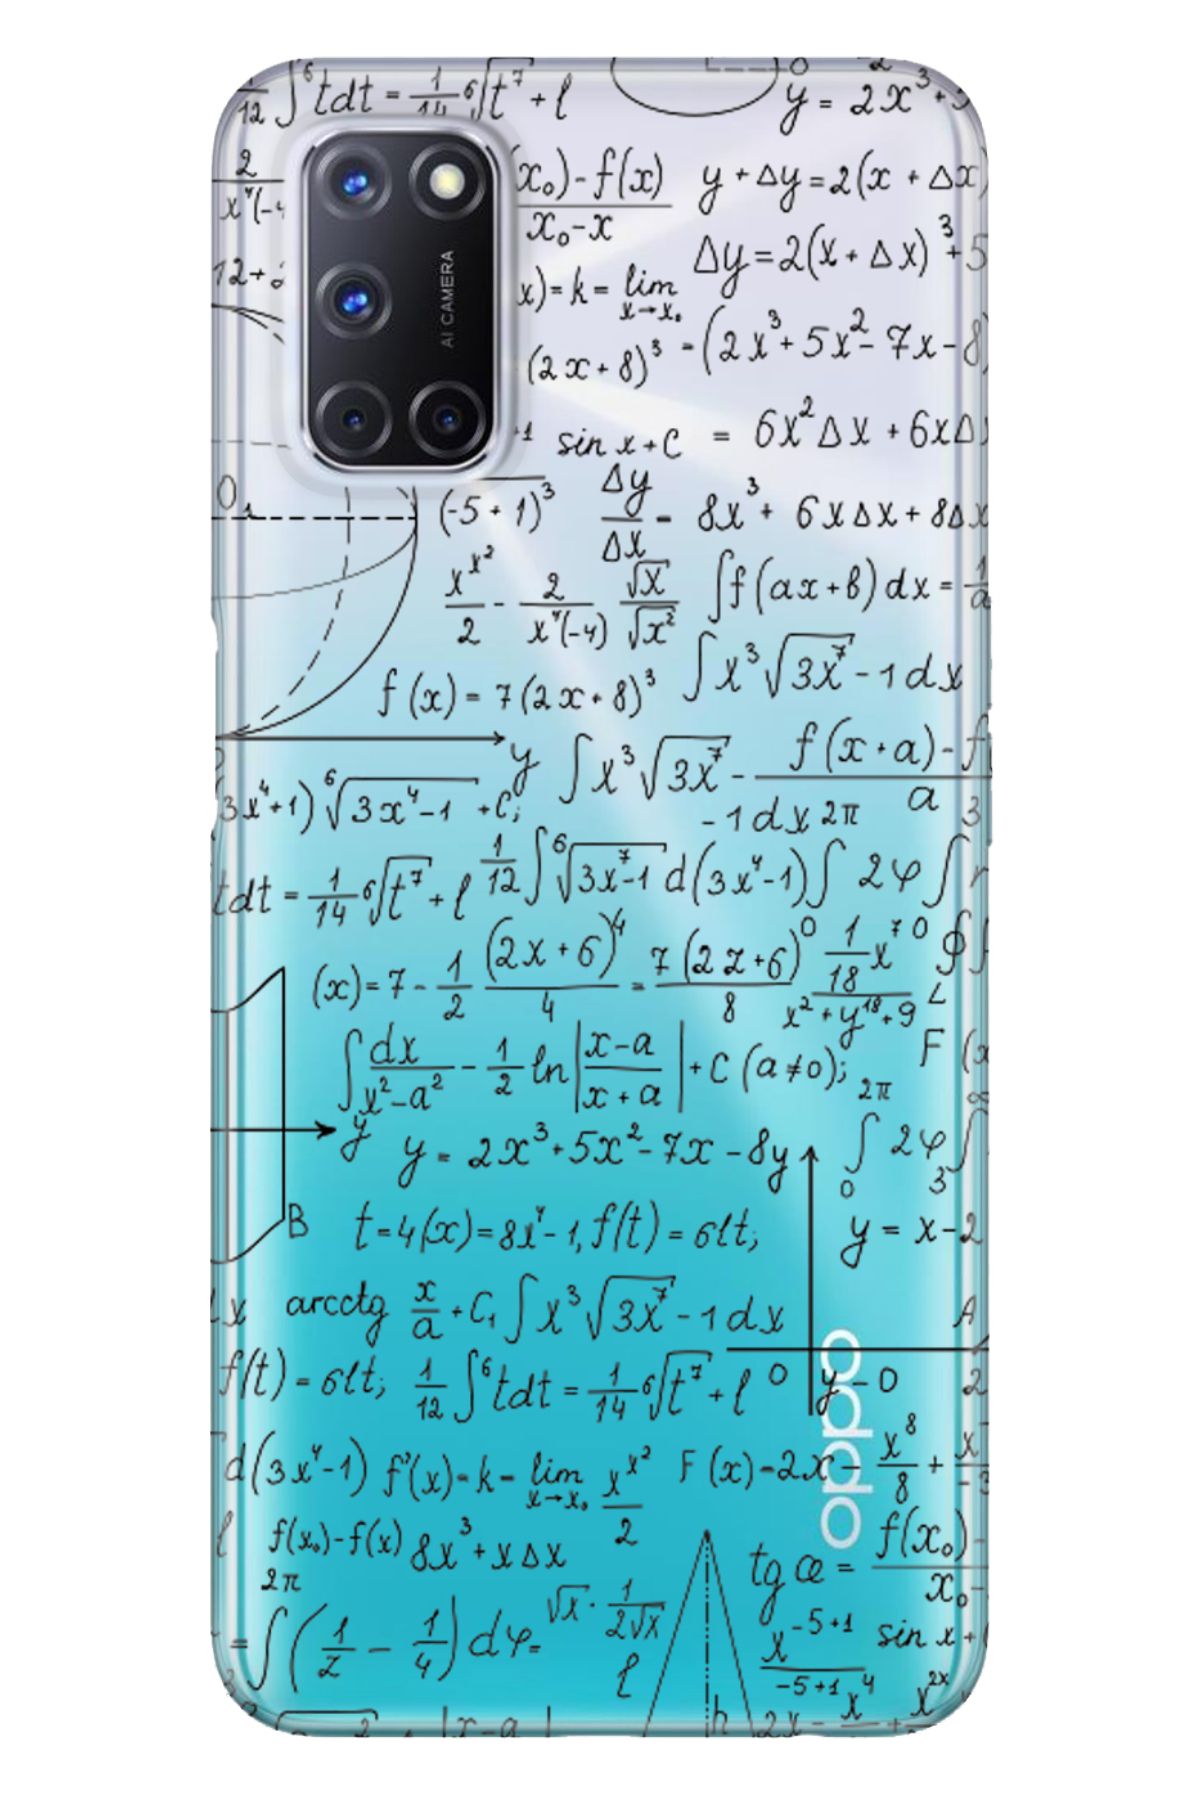 1/12 ∫ ⁶tdt = 1/14 ⁶√t⁷ + l
O
y = 2x³+5
2
x⁴(-4
(x₀) - f(x)
x₀-x
y + Δy = 2(x + Δx)
12+
x) = k = lim
x→x₀
Δy = 2(x + Δx)³ + 5
AI CAMERA
(2x + 8)³ - (2x³ + 5x² - 7x - 8)
+1 sin x + C = 6x²Δx + 6xΔx
O₁ (-5 + 1)³ Δy/Δx - 8x³ + 6xΔx + 8Δx
x^x²/2 - 2/x⁴(-4) √x/√x² ∫f(ax+b)dx = 1/a
f(x) = 7(2x + 8)³ ∫x³√3x⁷ - 1 dx
y ∫x³√3x⁷ - f(x + a) - f/a
-1 dx 2π 3
3x⁴+1) ⁶√3x⁴-1 + C;
tdt = 1/14 ⁶√t⁷ + l 1/12 ∫⁶√3x⁷-1 d(3x⁴-1) ∫ 2φ ∫ r
(x) = 7 - 1/2 (2x + 6)⁴/4 = 7(2z+6)⁰/8 1/18 x⁷⁰ ∮
x² + y¹⁸ + 9 L
∫dx/x²-a² - 1/2 ln|x-a/x+a| + C (a≠0); F (x
2π ∞
y y = 2x³ + 5x² - 7x - 8y ∫ 2φ ∫
0 3
B t = 4(x) = 8x⁴ - 1, f(t) = 6lt; y = x-2
x arcctg x/a + C₁ ∫x³√3x⁷ - 1 dx A
f(t) = 6lt; 1/12 ∫⁶tdt = 1/14 ⁶√t⁷ + l O y - 0 2
oppo
d(3x⁴-1) f'(x) - k - lim x^x²/2 F(x) - 2x - x⁸/8 + x/-3
x→x₀
l f(x₀) - f(x) 8x³ + xΔx tg æ = f(x₀) -/x₀-
2π
= ∫(1/z - 1/4) dφ = √x · 1/2√x x^-5+1/-5+1 sin x +
l x⁴ x^2x
2 x-a h 2x - x +